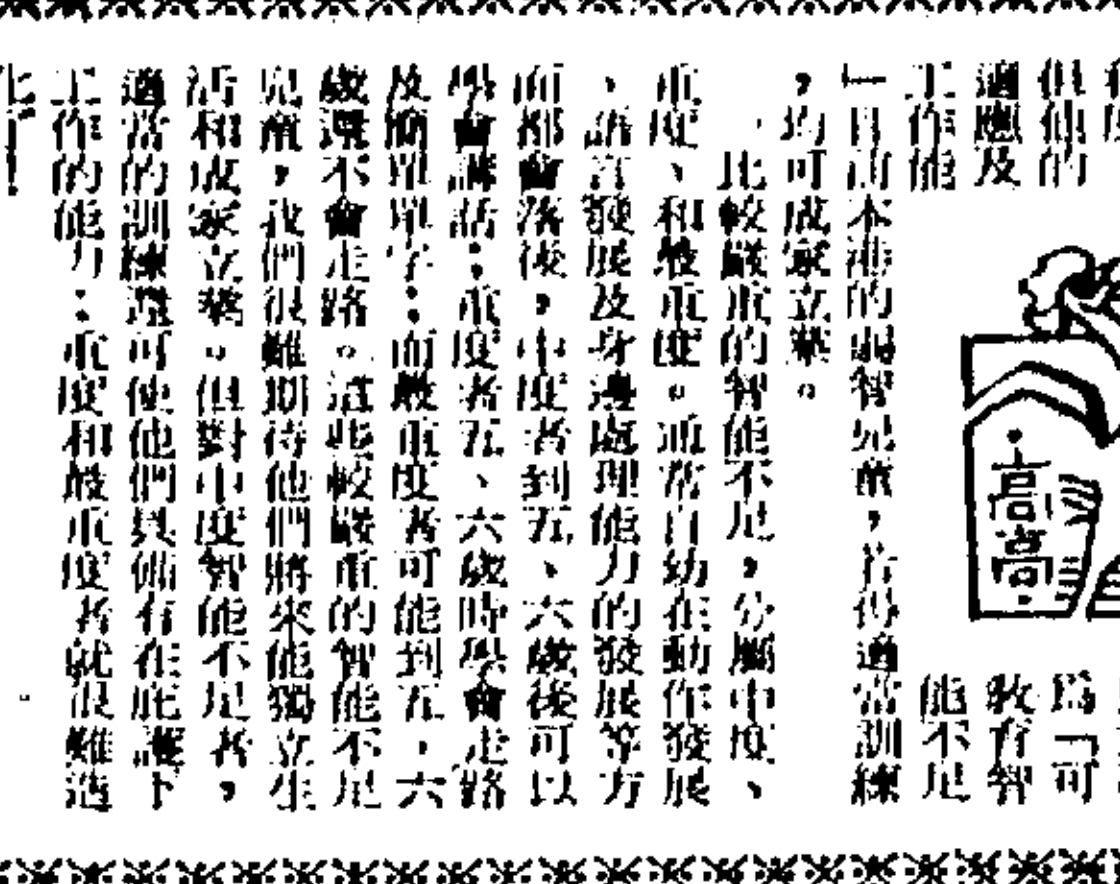 但他的
適應及
工作能
·高高·
爲「可
教育智
能不足
」目前本港的弱智兒童,若得適當訓練
,均可成家立業。
比較嚴重的智能不足,分屬中度、
重度、和重度。通常自幼在動作發展
、語言發展及身邊處理能力的發展等方
面都會落後,中度者到五、六歲後可以
學會講話;重度者五、六歲時學會走路
及簡單單字;而重度者可能到五、六
歲還不會走路。這些較嚴重的智能不足
兒童,我們很難期待他們將來能獨立生
活和成家立業。但對中度智能不足者,
適當的訓練還可使他們具備有在庇護下
工作的能力;重度和重度者就很難造
化了!